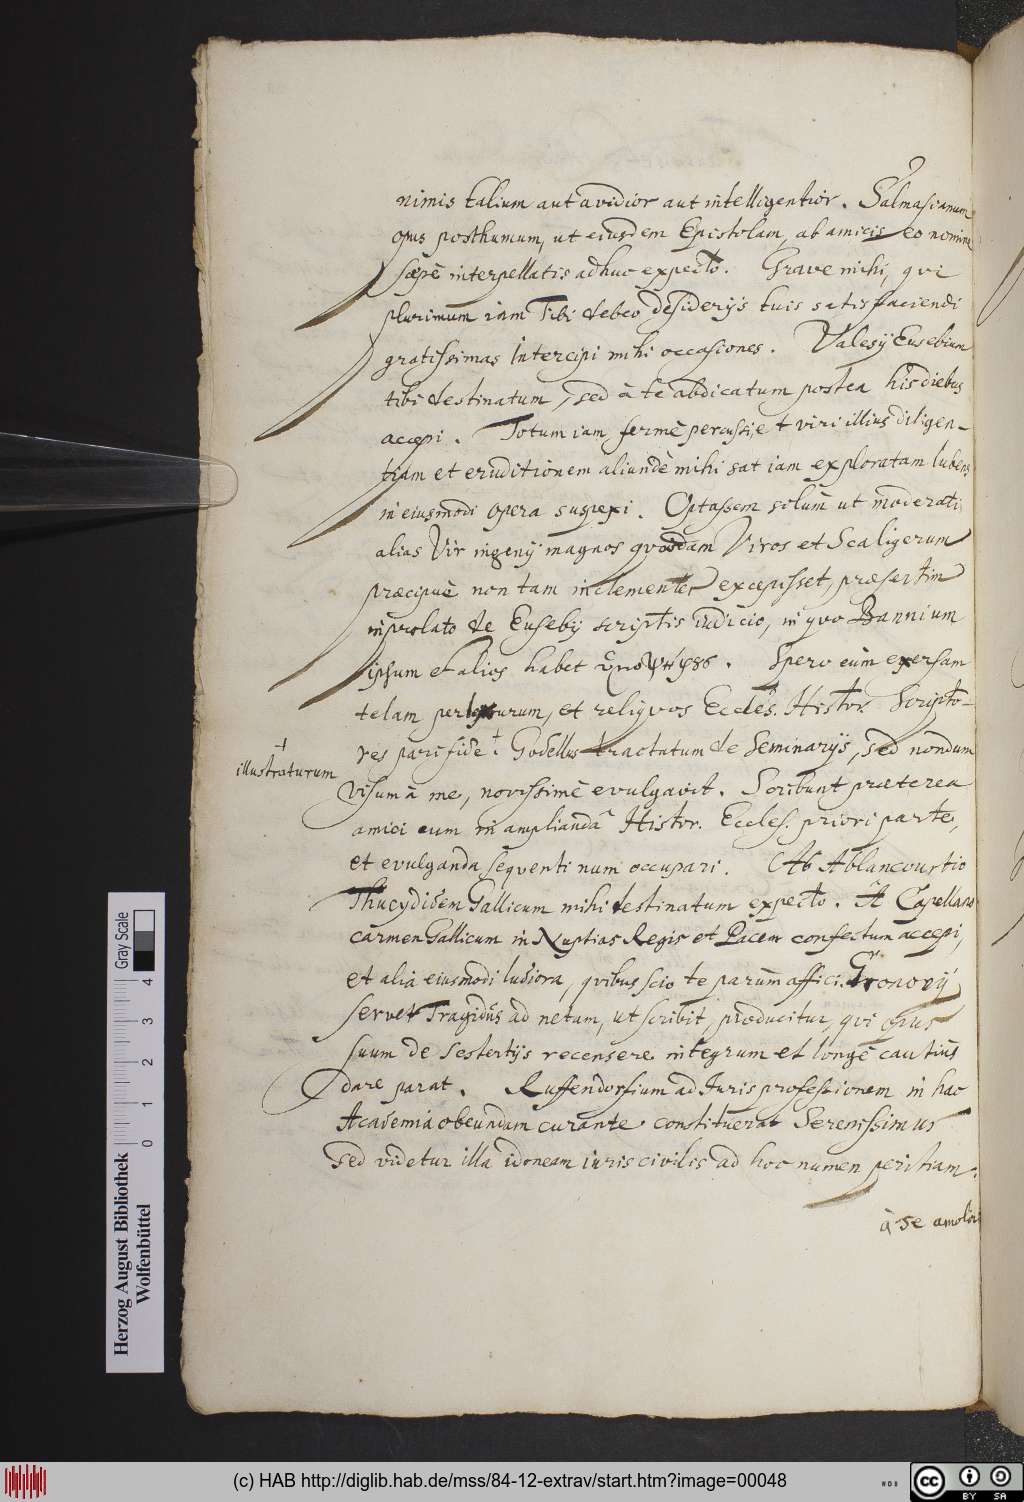 nimis talium aut avidior aut intelligentior. Salmasianum
opus posthumum, ut eiusdem Epistolam, ab amicis eo nomine
sæpè interpellatis adhuc expecto. Grave mihi, qvi
plurimum iam Tibi debeo desiderijs tuis satisfaciendi
gratissimas intercipi mihi occasiones. Valesij Eusebium
tibi destinatum, sed à te abdicatum postea his diebus
accepi. Totum iam fermè percussi, et viri illius diligen-
tiam et eruditionem aliundè mihi sat iam exploratam lubens
in eiusmodi opera suspexi. Optassem solùm ut moderati
alias Vir ingenij magnos qvosdam Viros et Scaligerum
præcipuè non tam inclementer excepisset, præsertim
in prolato de Eusebij scriptis iudicio, in qvo Bannium
ipsum et alios habet
Spero eùm exersam
telam pertexurum, et reliqvos Eccles. Histor. Scripto-
res pari fide †. Godellus tractatum de Seminarijs, sed nondum
†
illustraturum
visum à me, novissimè evulgavit. Scribunt præterea
amici eum in ampliandâ Histor. Eccles. priori parte,
et evulganda seqventi num occupari. Ab Ablancourtio
Thucydidem Gallicum mihi destinatum expecto. A Capellano
carmen Gallicum in Nuptias Regis et Pacem confectum accepi,
et alia eiusmodi ludiora, qvibus scio te parùm affici. Gronovij
servet Tragidus ad netam, ut scribit, producitur, qvi opus
suum de Sestertijs recensere integrum et longè cautius
dare parat. Ruffendorfium ad Iuris professionem in hac
Academia obeundam curante constituerat Serenissimus
sed videtur illa idoneam iuris civilis ad hoc numen peritiam
à se amoliri
Herzog August Bibliothek
Wolfenbüttel
Gray Scale
0 1 2 3 4
(c) HAB http://diglib.hab.de/mss/84-12-extrav/start.htm?image=00048
cc BY SA